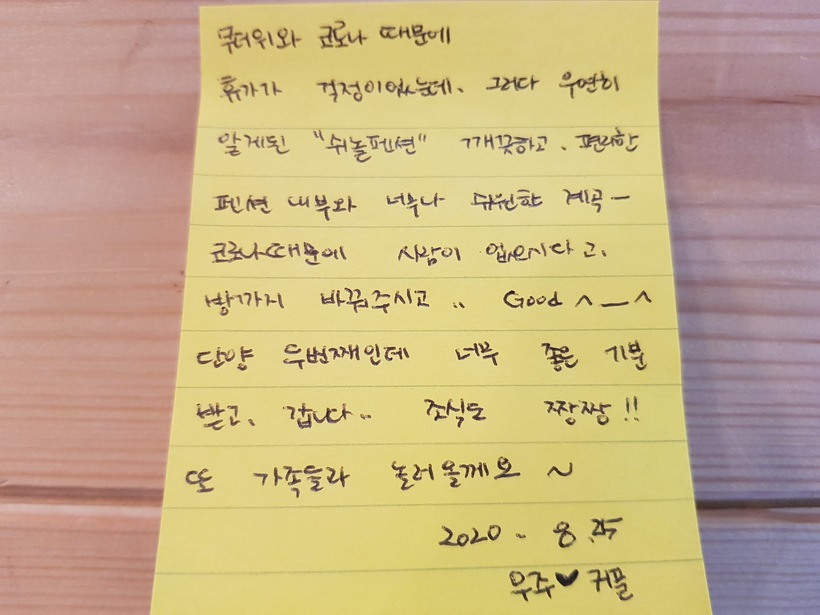 무더위와 코로나 때문에
휴가가 걱정이었는데. 그러다 우연히
알게된 "쉬놀펜션" 깨끗하고. 편리한
펜션 내부와 너무나 쉬원한 계곡ー
코로나때문에 사람이 없으시다고.
방까지 바꿔주시고 .. Good ^__^
단양 두번째인데 너무 좋은 기분
받고. 갑니다.. 조식도 짱짱!!
또 가족들과 놀러올께요 ~
2020. 8.25
우주♥커플